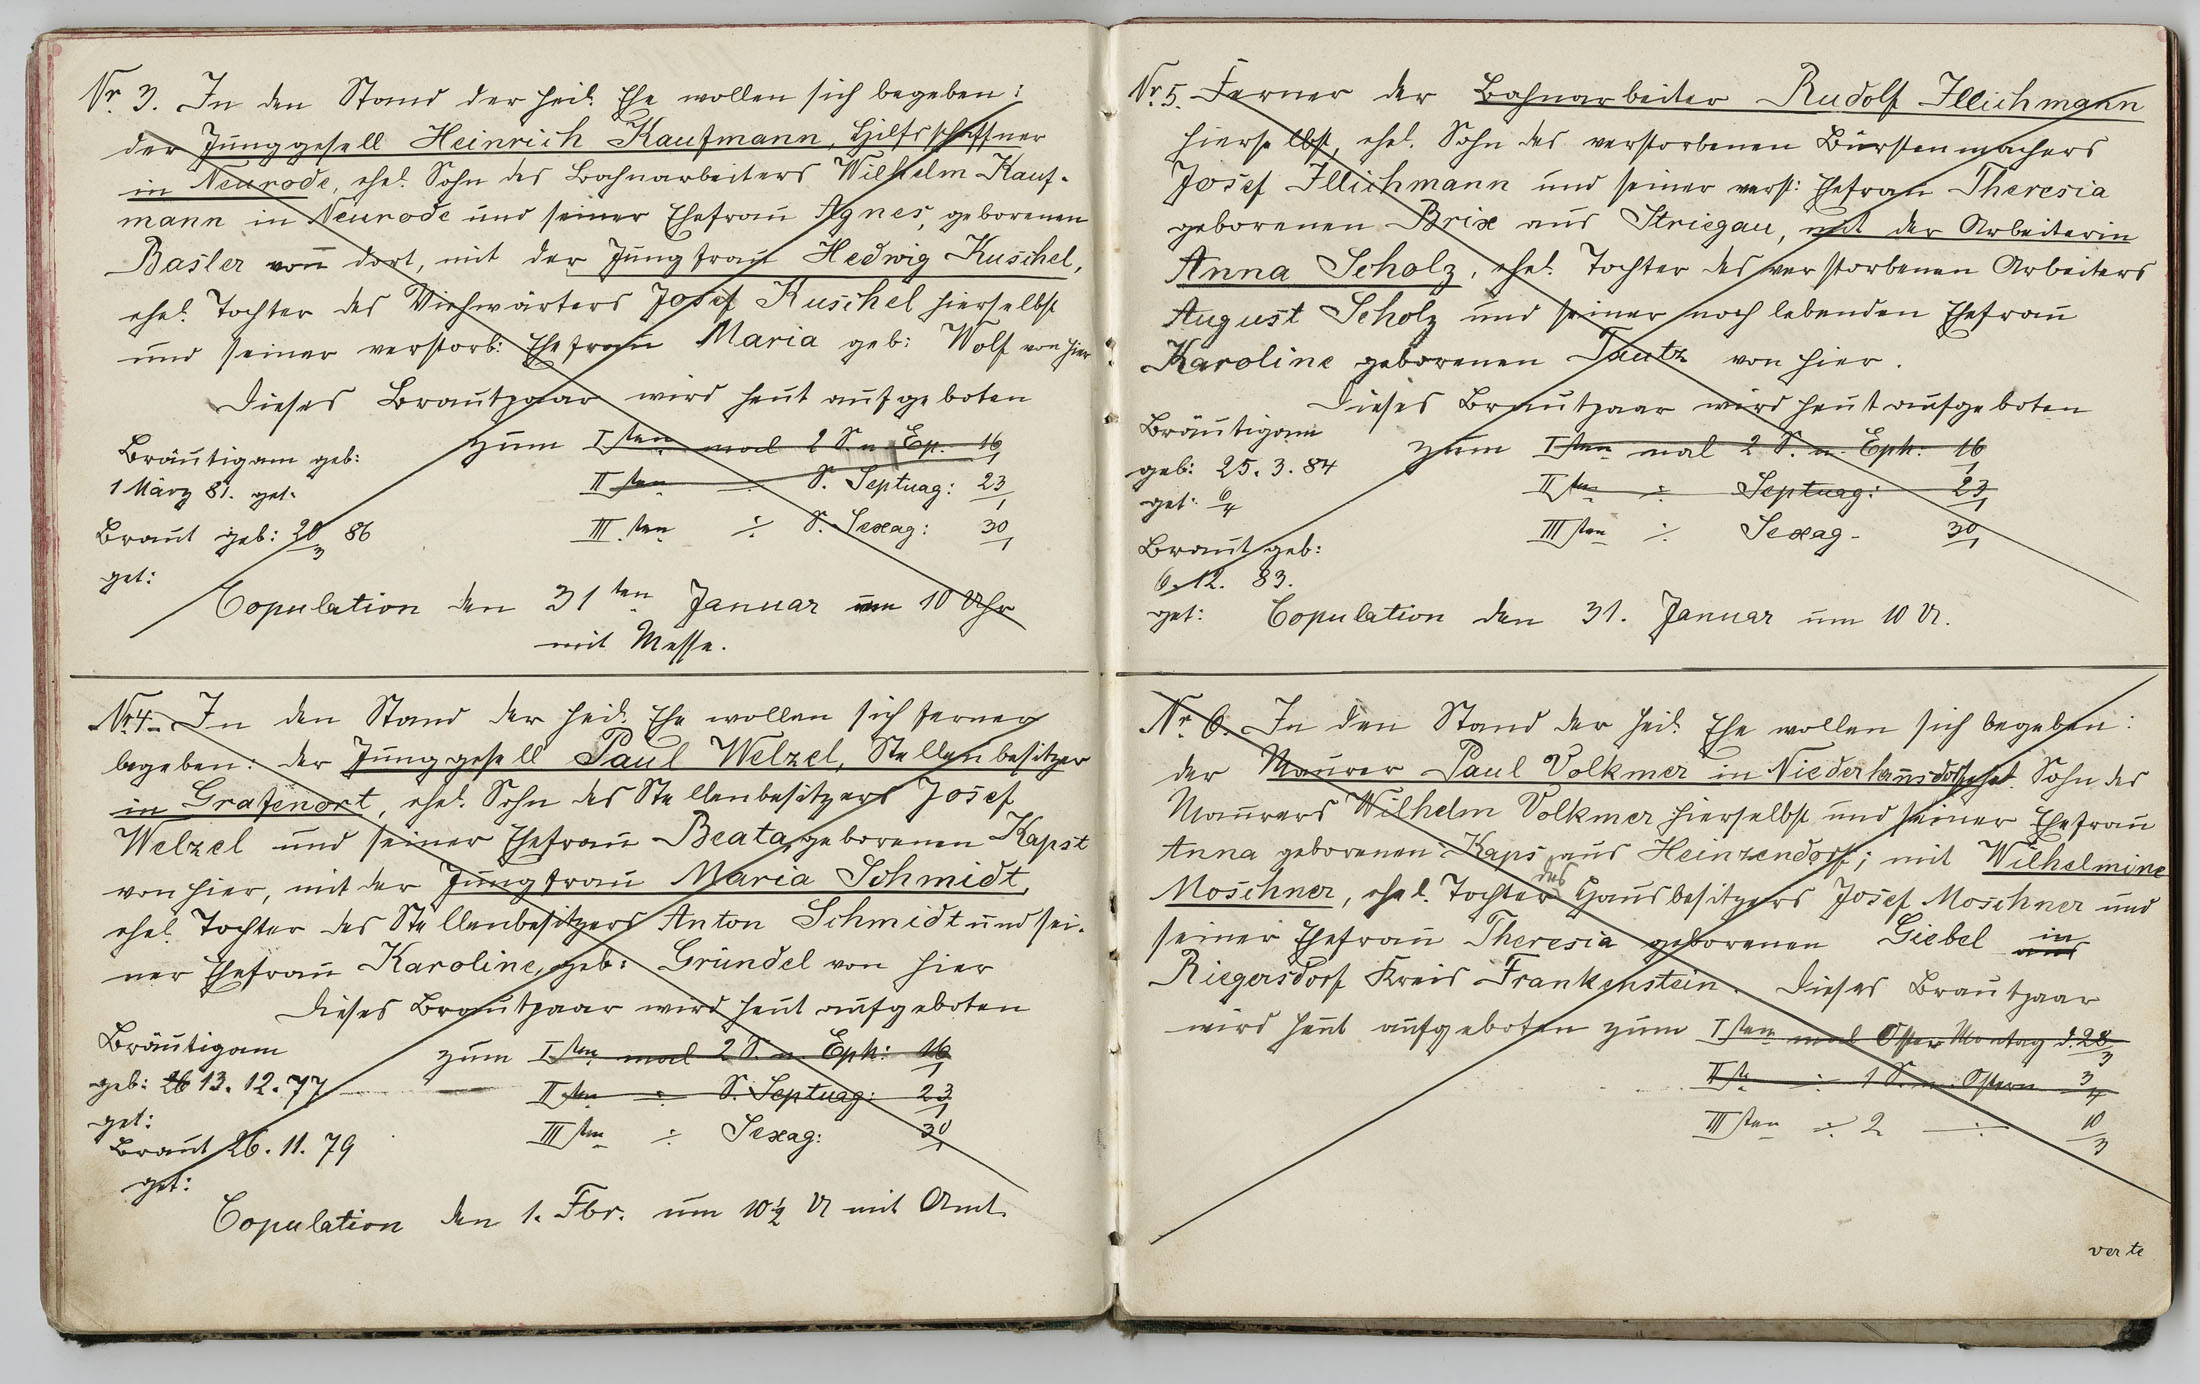 Nr. 3. In den Stand der heil. Ehe wollen sich begeben:
der Junggesell Heinrich Kaufmann, Hilfsschaffner
in Neurode, ehel. Sohn des Bahnarbeiters Wilhelm Kauf-
mann in Neurode und seiner Ehefrau Agnes, geborenen
Basler von dort, mit der Jungfrau Hedwig Kuschel,
ehel. Tochter des Viehwärters Josef Kuschel hierselbst
und seiner verstorb: Ehefrau Maria geb: Wolf von hier
Dieses Brautpaar wird heut aufgeboten
zum Isten mal 2 S. n. Ep. 16/1
Bräutigam geb:
1 März 81. get:
IIten ÷ S. Septuag: 23/1
Braut geb: 20/3 86
IIIten ÷ S. Sexag: 30/1
get:
Copulation den 31ten Januar um 10 Uhr
mit Messe.
Nr 4. In den Stand der heil. Ehe wollen sich ferner
begeben: der Junggesell Paul Welzel, Stellenbesitzer
in Grafenort, ehel. Sohn des Stellenbesitzers Josef
Welzel und seiner Ehefrau Beata, geborenen Kapst
von hier, mit der Jungfrau Maria Schmidt,
ehel. Tochter des Stellenbesitzers Anton Schmidt und sei-
ner Ehefrau Karoline, geb: Gründel von hier
Dieses Brautpaar wird heut aufgeboten
Bräutigam
zum Isten mal 2 S. n. Eph: 16/1
geb: 13. 12. 77
IIten ÷ S. Septuag: 23/1
get:
Braut 26. 11. 79
IIIten ÷ Sexag: 30/1
get:
Copulation den 1. Fbr. um 10½ U mit Amt.
Nr. 5. Ferner der Bahnarbeiter Rudolf Illichmann
hierselbst, ehel. Sohn des verstorbenen Bürstenmachers
Josef Illichmann und seiner verst: Ehefrau Theresia
geborenen Brix aus Striegau, mit der Arbeiterin
Anna Scholz, ehel. Tochter des verstorbenen Arbeiters
August Scholz und seiner noch lebenden Ehefrau
Karoline geborenen Tautz von hier.
Dieses Brautpaar wird heut aufgeboten
Bräutigam
zum Isten mal 2 S. n. Eph: 16/1
geb: 25. 3. 84
get: 6/4
IIten ÷ Septuag: 23/1
IIIten ÷ Sexag. 30/1
Braut geb:
6. 12. 83.
get:
Copulation den 31. Januar um 10 U.
Nr. 6. In den Stand der heil. Ehe wollen sich begeben:
der Maurer Paul Volkmer in Niederhannsdorf, ehel. Sohn des
Maurers Wilhelm Volkmer hierselbst und seiner Ehefrau
Anna geborenen Kaps aus Heinzendorf; mit Wilhelmine
Moschner, ehel. Tochter des Hausbesitzers Josef Moschner und
seiner Ehefrau Theresia geborenen Giebel aus in
Riegersdorf Kreis Frankenstein. Dieses Brautpaar
wird heut aufgeboten zum Isten mal Oster Montag d. 28/3
IIte ÷ 1 S. n. Ostern 3/4
IIIten ÷ 2 ÷ 10/3
verte